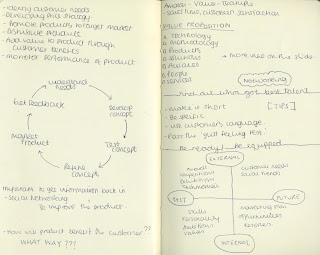 - Identify customer needs
- Developing price strategy
- Promote products to target market
- Distribute products
- Add value to product through
customer benefits
- monitor performance of product
understand
needs
Develop
concept
Test
concept
Refine
concept
market
Product
Get feedback
Important to get information back in
- Social Networking
to improve the product
- How will product benefit the customer??
WHAT WAY???
VALUE PROPOSITION
Technology
Methodology
Products
→ more uses on the slide
People
Services
Networking
Find out who's got best talent
- make it short [TIPS]
- Be specific
- use customer's language
- Pass the gut feeling test.
Be ready / Be equipped
EXTERNAL
Awards
Testimonials
customer needs
Social trends
PAST
FUTURE
Skills
Personality
Values
marketing plan
Opportunities
INTERNAL